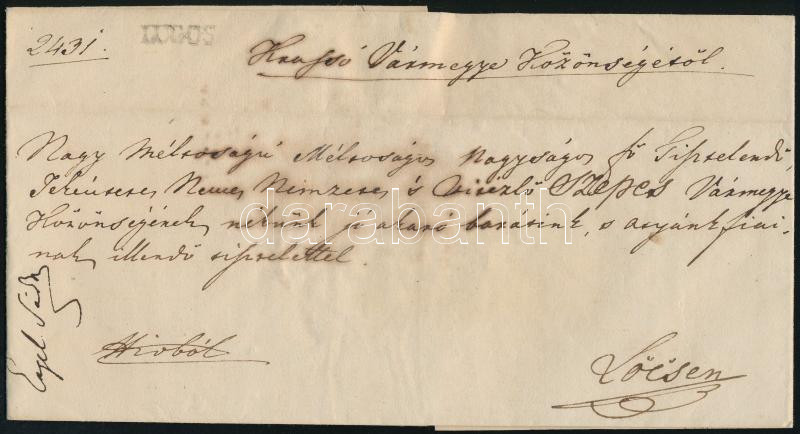 2431.
LUGOS
Krassó Vármegye Közönségétől.
Nagy Méltóságú Méltóságos Nagyságos fő Tisztelendő,
Tekintetes Nemes Nemzetes és Vitézlő Szepes Vármegye
Közönségének nékünk jó akaró barátink, s atyánkfiai-
nak illendő tisztelettel.
darabanth
Hivatból
Lőcsen